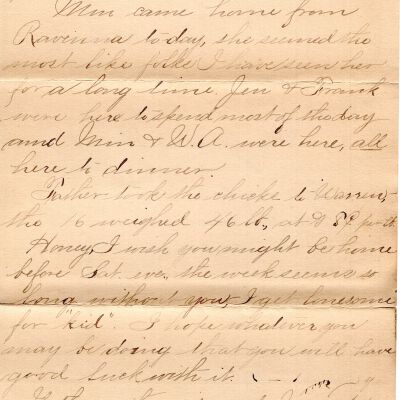 Min came home from
Ravenna today, she seemed the
most like folks I have seen her
for a long time. Jen & Frank
were here to spend most of the day
and Min & W.A. were here, all
here to dinner.
Father took the chicks to Warren,
the 16 weighed 46 lb, at 8¢ per lb.
Honey, I wish you might be home
before Sat. eve, the week seems so
long without you, I get lonesome
for "kid". I hope whatever you
may be doing that you will have
good luck with it.